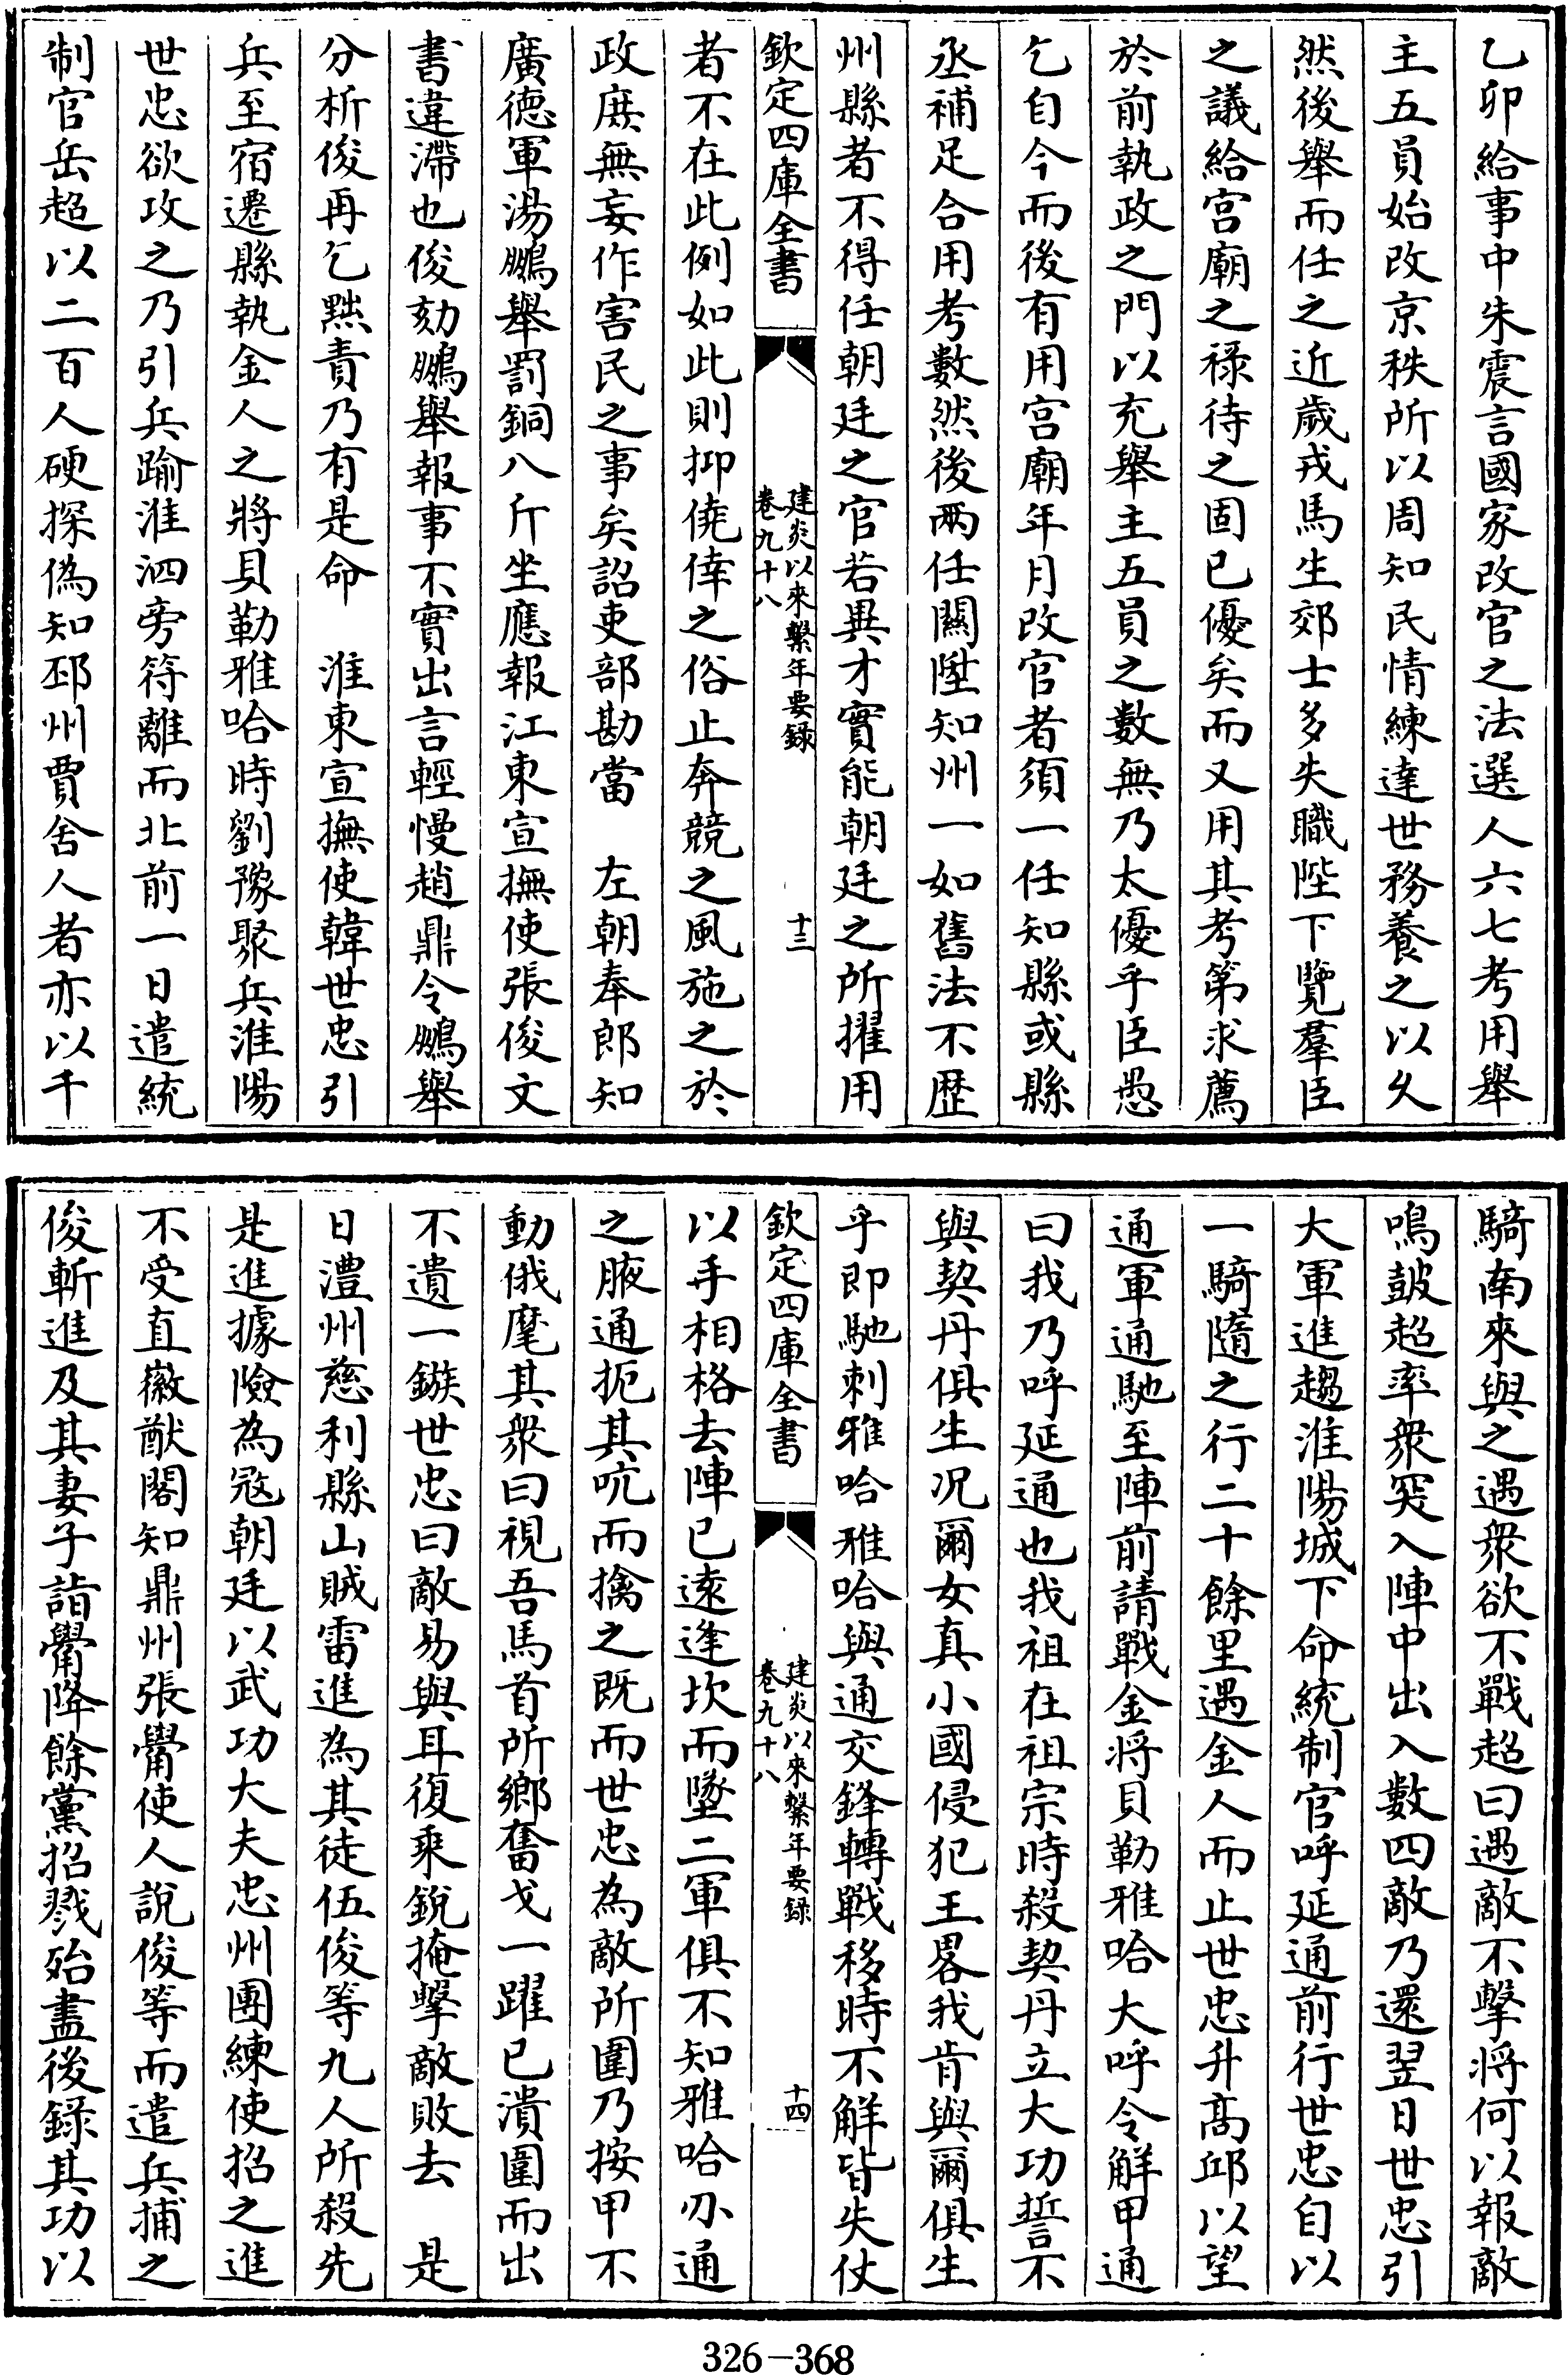 乙卯給事中朱震言國家改官之法選人六七考用舉
主五員始改京秩所以周知民情練達世務養之以久
然後舉而任之近歲戎馬生郊士多失職陛下覽羣臣
之議給宫廟之禄待之固已優矣而又用其考第求薦
於前執政之門以充舉主五員之數無乃太優乎臣愚
乞自今而後有用宫廟年月改官者須一任知縣或縣
丞補足合用考數然後兩任關陞知州一如舊法不歴
州縣者不得任朝廷之官若異才實能朝廷之所擢用
欽定四庫全書
建炎以來繫年要録
卷九十八
十三
者不在此例如此則抑僥倖之俗止奔競之風施之於
政庶無妄作害民之事矣詔吏部勘當　左朝奉郎知
廣德軍湯鵬舉罰銅八斤坐應報江東宣撫使張俊文
書違滯也俊劾鵬舉報事不實出言輕慢趙鼎令鵬舉
分析俊再乞黜責乃有是命　淮東宣撫使韓世忠引
兵至宿遷縣執金人之將貝勒雅哈時劉豫聚兵淮陽
世忠欲攻之乃引兵踰淮泗旁符離而北前一日遣統
制官岳超以二百人硬探偽知邳州賈舍人者亦以千
騎南來與之遇衆欲不戰超曰遇敵不擊將何以報敵
鳴鼓超率衆突入陣中出入數四敵乃還翌日世忠引
大軍進趨淮陽城下命統制官呼延通前行世忠自以
一騎隨之行二十餘里遇金人而止世忠升髙邱以望
通軍通馳至陣前請戰金將貝勒雅哈大呼令解甲通
曰我乃呼延通也我祖在祖宗時殺契丹立大功誓不
與契丹俱生况爾女真小國侵犯王畧我肯與爾俱生
乎即馳刺雅哈雅哈與通交鋒轉戰移時不解皆失仗
欽定四庫全書
建炎以來繫年要録
卷九十八
十四
以手相格去陣已逺逢坎而墜二軍俱不知雅哈刃通
之腋通扼其吭而擒之既而世忠為敵所圍乃按甲不
動俄麾其衆曰視吾馬首所鄉奮戈一躍已潰圍而出
不遺一鏃世忠曰敵易與耳復乘銳掩擊敵敗去　是
日澧州慈利縣山賊雷進為其徒伍俊等九人所殺先
是進據險為冦朝廷以武功大夫忠州團練使招之進
不受直徽猷閣知鼎州張觷使人說俊等而遣兵捕之
俊斬進及其妻子詣觷降餘黨招戮殆盡後録其功以
326－368